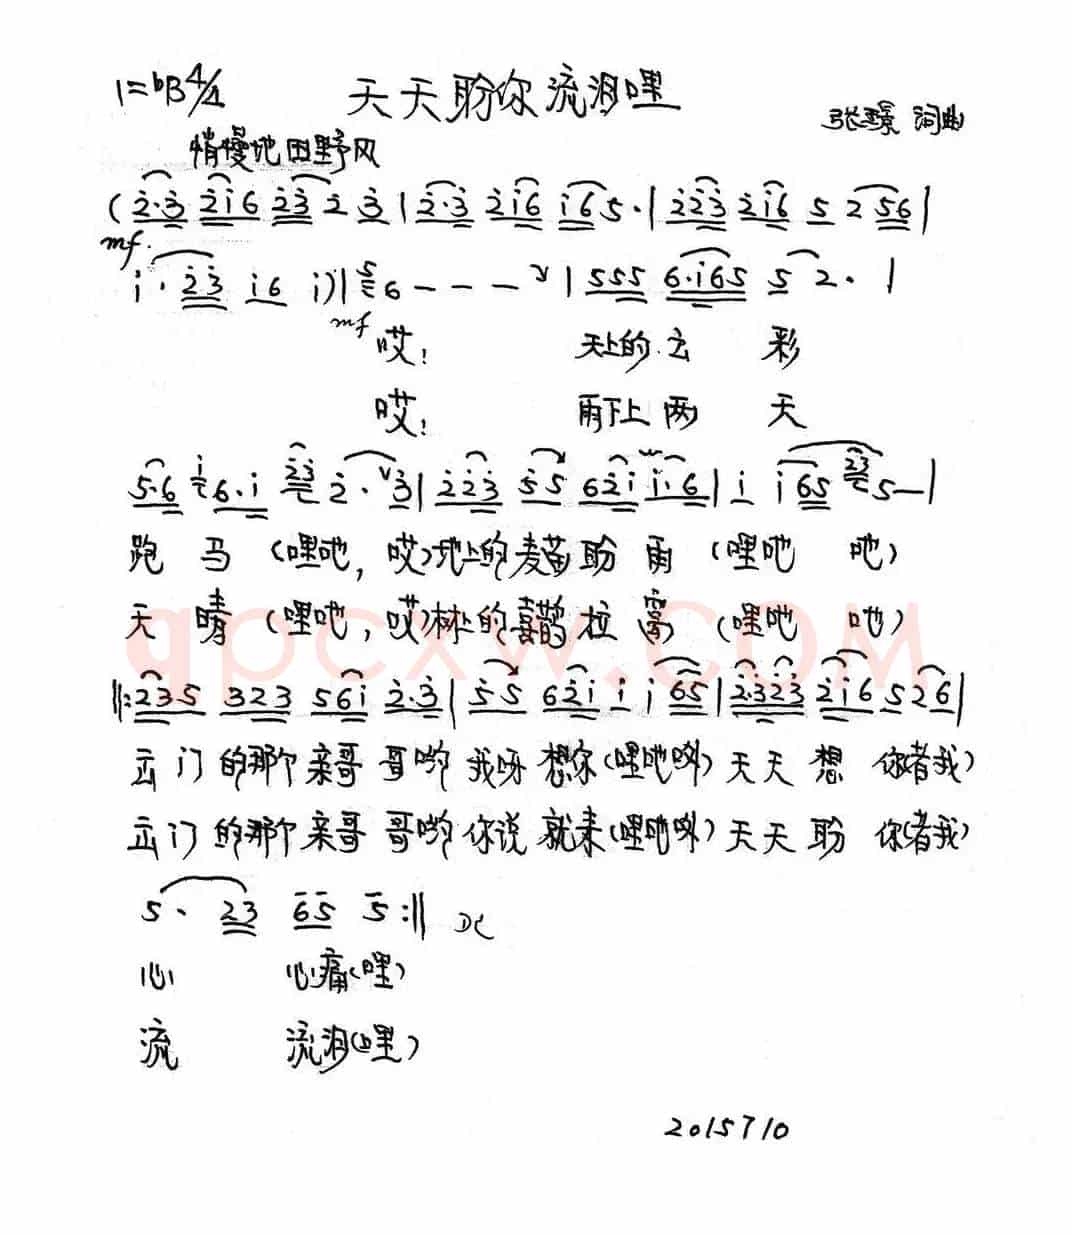 1=bB 4/4 天天盼你流泪哩
张璟 词曲
稍慢地田野风
(2·3 2i6 23 2 3|2·3 2i6 i65·|223 2i6 5 2 56|
mf.
i· 23 i6 i)|5 6 - - - ∨|555 6·i65 5 2· |
mf 哎! 天上的云 彩
哎! 雨下上两 天
5·6 i 6·i 23 2· ∨3|223 55 62i i·6|i i65 23 5—|
跑 马 (哩吔,哎)地上的麦苗盼 雨 (哩吔 吔)
天 晴 (哩吔,哎)林上的喜鹊拉 窝 (哩吔 吔)
qpcxw.COM
‖:235 323 56i 2·3|55 62i i i65|2·323 2i6 526|
立门的那个亲哥 哥哟 我呀想你(哩吔哟)天天想 你(者我)
立门的那个亲哥 哥哟你说就来(哩吔哟)天天盼 你(者我)
5· 23 65 5:‖ DC
心 心痛(哩)
流 流泪(哩)
2015710